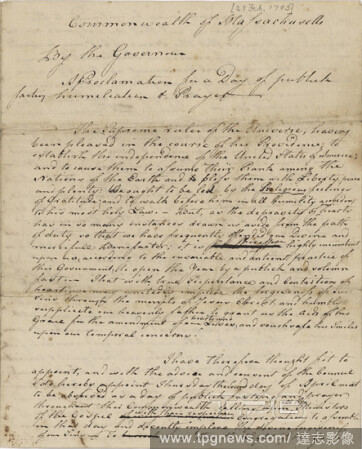 [21 Feb. 1795]
Commonwealth of Massachusetts
By the Governor
A Proclamation for a Day of publick
fasting humiliation & Prayer
The Supreme Ruler of the Universe, having
been pleased in the course of his Providence, to
establish the independence of the United States of America
and to cause them to assume their rank among the
Nations of the Earth and to bless them with Liberty, peace
and plenty: we ought to be led by the Religious feelings
of Gratitude; and to walk before him in all humility according
to his most holy Law — But, as the depravity of
has in so many instances drawn us aside from the path
of duty so that we have frequently offended our divine and
merciful Benefactor; it is therefore highly incumbent
upon us, according to the invariable and ancient practice of
this Government, to open the Year by a publick and solemn
fasting That with true repentance and contrition of
heart, we may unitedly implore the forgiveness of our
sins through the merits of Jesus Christ and humbly
supplicate our heavenly father, to grant us the aids of his
Grace for the amendment of our hearts and Lives, and vouchsafe his smiles
upon our temporal concerns:
I have therefore thought fit to
appoint, and with the advice and consent of the Council
I do hereby appoint Thursday the day of April next
to be observed as a day of publick fasting and prayer
throughout this Commonwealth calling upon Ministers
of the Gospel with their Congregations to assemble
on that day and devoutly implore the
our sins to
www.tpgnews.com 達志影像